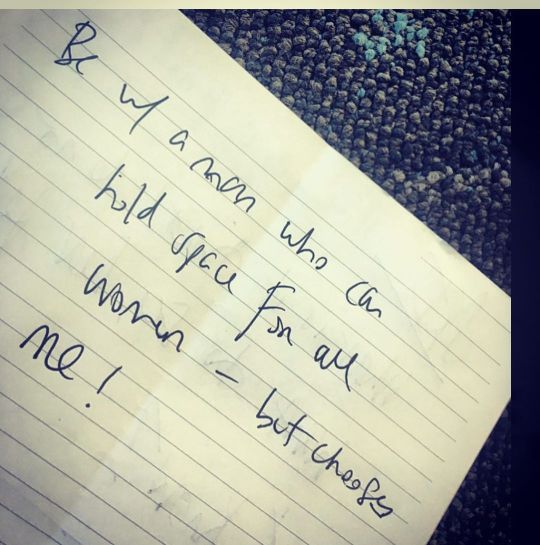 Be w/ a man who can
hold space for all
women – but chooses
me!